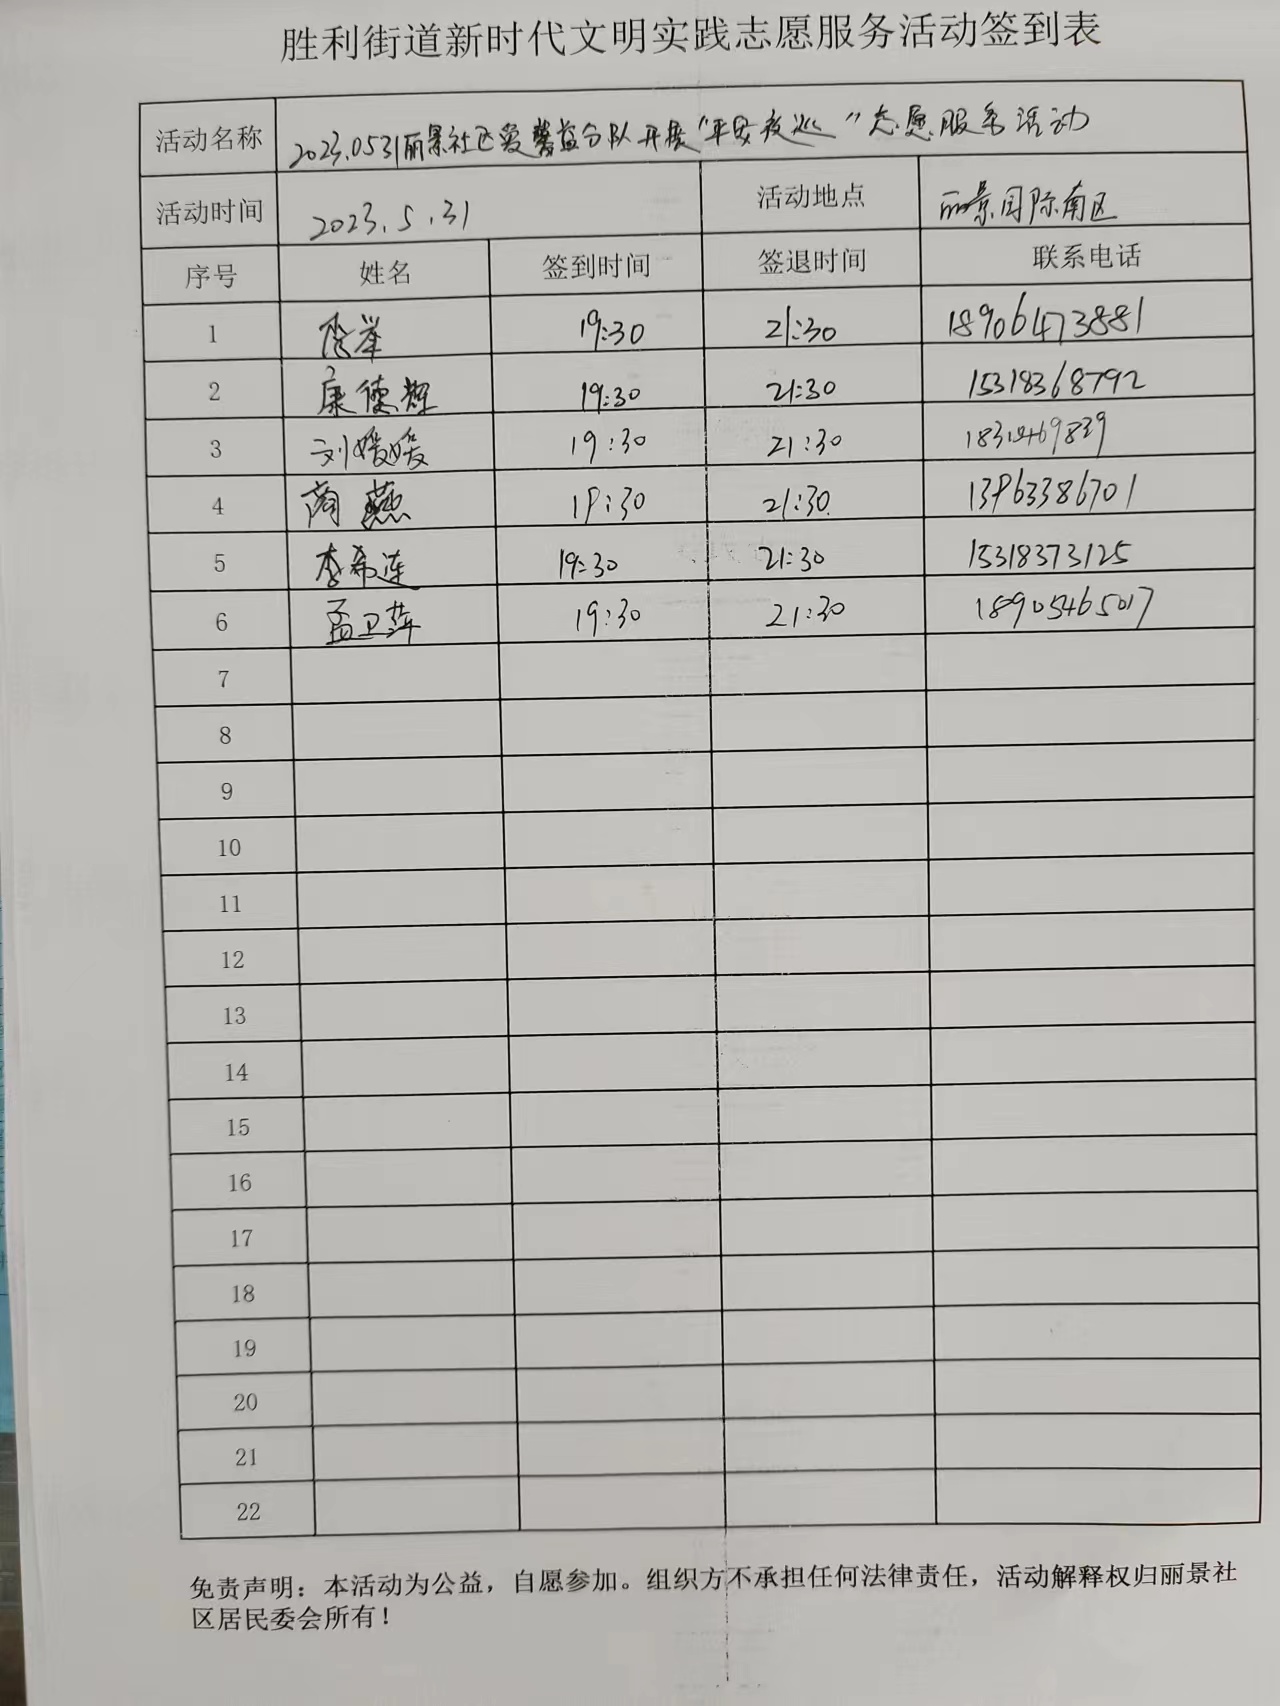 胜利街道新时代文明实践志愿服务活动签到表
活动名称 2023.0531丽景社区爱馨益分队开展“平安夜巡”志愿服务活动
活动时间 2023.5.31 活动地点 丽景国际南区
序号 姓名 签到时间 签退时间 联系电话
1 19:30 21:30 18906473881
2 康德辉 19:30 21:30 15318368792
3 刘媛媛 19:30 21:30
4 商燕 19:30 21:30 13963386701
5 李希连 19:30 21:30 15318373125
6 孟卫萍 19:30 21:30 18905465017
7
8
9
10
11
12
13
14
15
16
17
18
19
20
21
22
免责声明：本活动为公益，自愿参加。组织方不承担任何法律责任，活动解释权归丽景社
区居民委会所有！